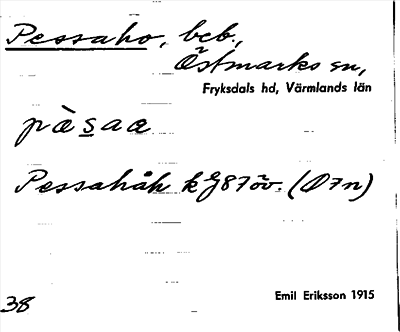 Pessaho, beb.,
Östmarks sn,
Fryksdals hd, Värmlands län
pàsaa
Pessahåh kJ87öv. (Ø7n)
Emil Eriksson 1915
38